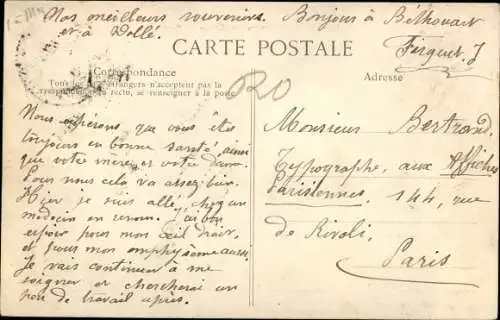 Nos meilleurs souvenirs. Bonjours à Béthouart
et à Dollé.
Firquet J
CARTE POSTALE
Correspondance
Tous les étrangers n'acceptent pas la
recto, se renseigner à la poste
Adresse
Nous espérons que vous êtes
toujours en bonne santé, ainsi
que votre mère et votre dame.
Pour nous cela va assez bien.
Hier je suis allé chez un
médecin en renom. J'ai bon
espoir pour mon œil droit,
et pour mon emphysème aussi.
Je vais continuer à me
soigner et chercherai un
peu de travail après.
Monsieur Bertrand
Typographe, aux Affiches
Parisiennes, 144, rue
de Rivoli,
Paris